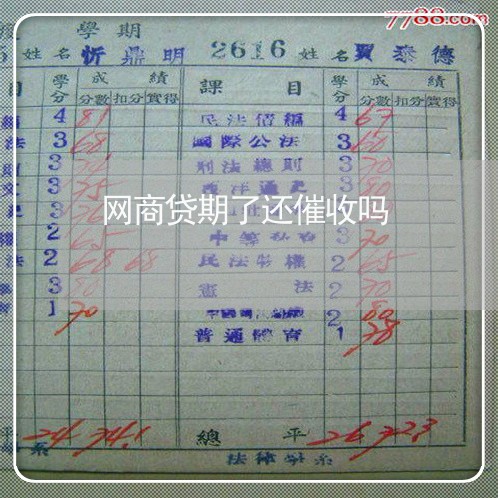 7788.com
學期
姓名 忻鼎明 2616 姓名 賈泰德
目 學分 成績 課目 學分 成績
分數 扣分 實得 分數 扣分 實得
4 81 民法債編 4 67
法 3 68 國際公法 3 60
3 刑法總則 3 70
3 75 西洋通史 3 80
网商贷期了还催收吗
2 65 3 70
法 2 68 68 民法物權 2 65
3 80 憲法 2 70
1 70 2 80
普通體育 1 78
平 24 74.1 總平 26 72.3
系 法律學系